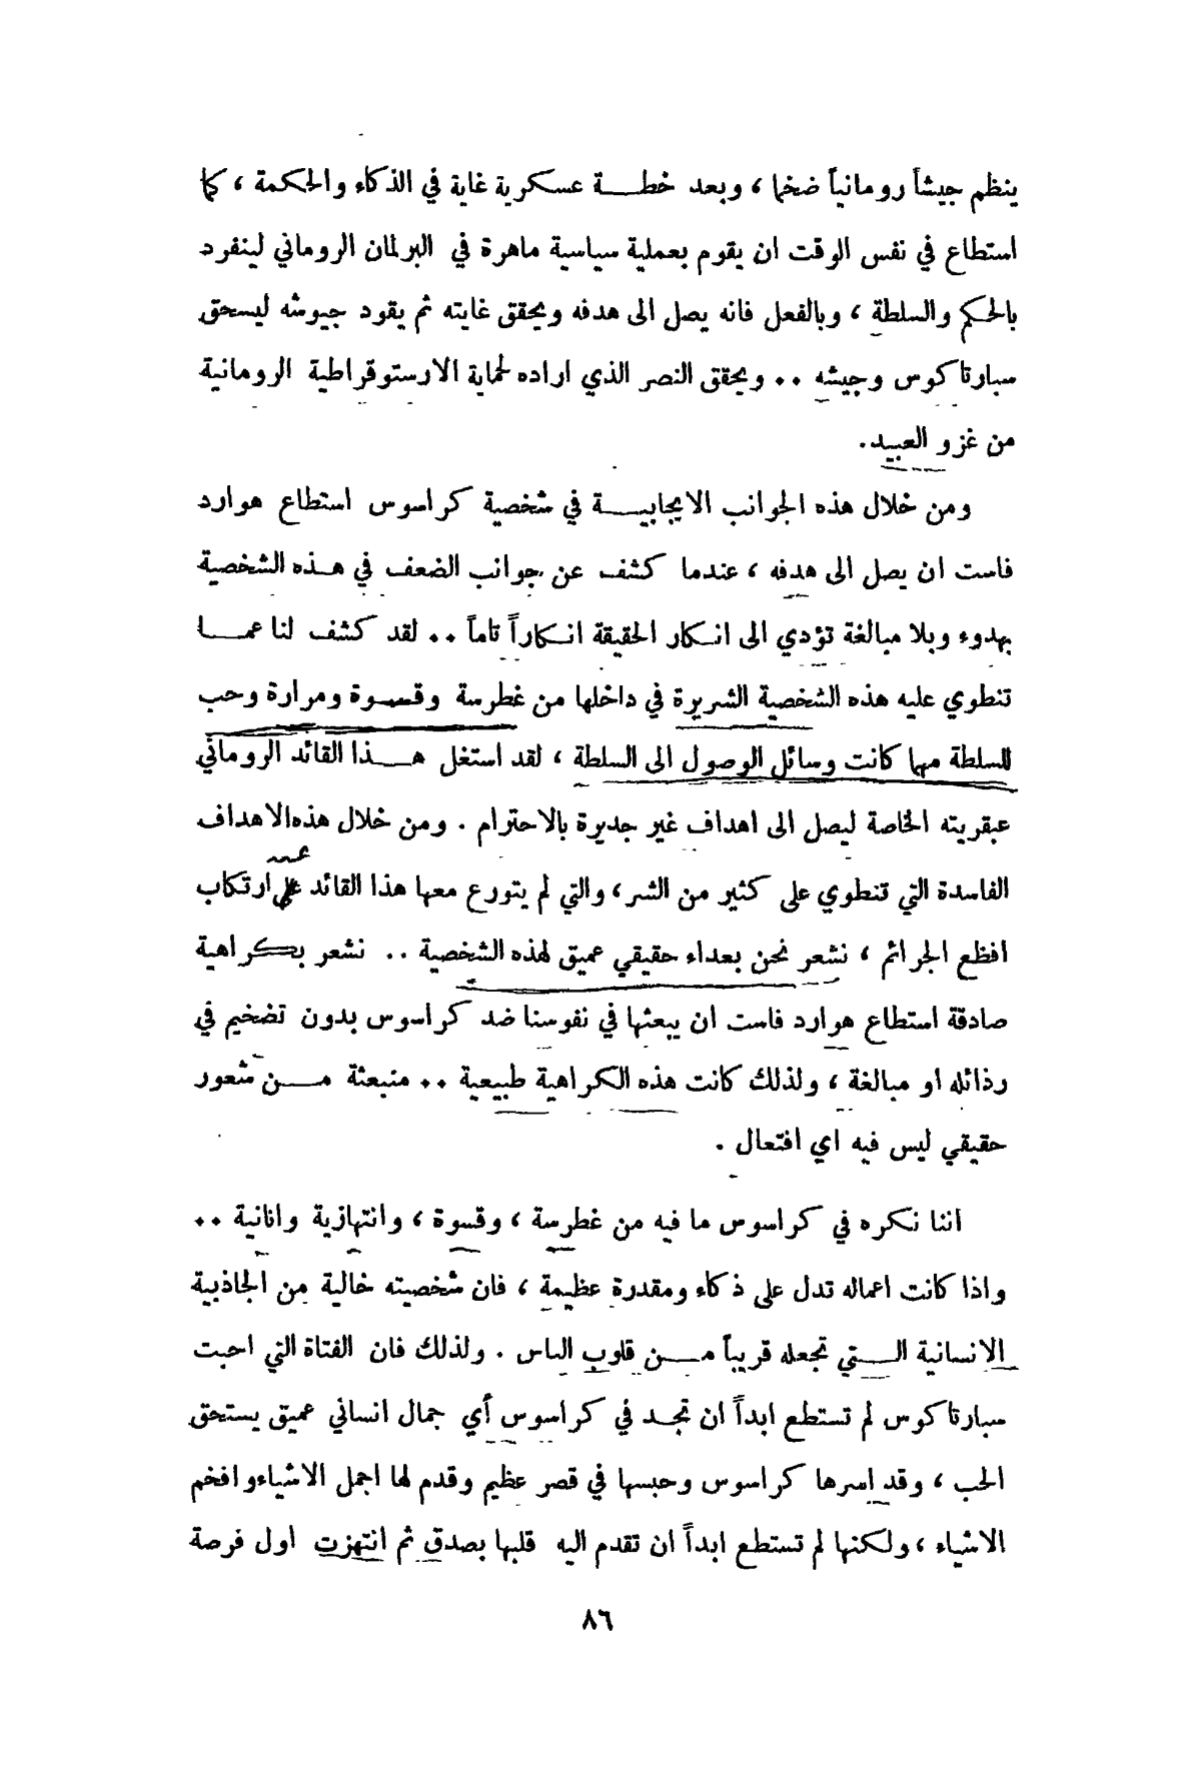 ينظم جيشاً رومانياً ضخما ، وبعد خطة عسكرية غاية في الذكاء والحكمة ، كما
استطاع في نفس الوقت ان يقوم بعملية سياسية ماهرة في البرلمان الروماني لينفرد
بالحكم والسلطة ، وبالفعل فانه يصل الى هدفه ويحقق غايته ثم يقود جيوشه ليسحق
سبارتاكوس وجيشه .. ويحقق النصر الذي اراده لحماية الارستوقراطية الرومانية
من غزو العبيد.
ومن خلال هذه الجوانب الايجابية في شخصية كراسوس استطاع هوارد
فاست ان يصل الى هدفه ، عندما كشف عن جوانب الضعف في هذه الشخصية
بهدوء وبلا مبالغة تؤدي الى انكار الحقيقة انكاراً تاماً .. لقد كشف لنا عما
تنطوي عليه هذه الشخصية الشريرة في داخلها من غطرسة وقسوة ومرارة وحب
للسلطة مهما كانت وسائل الوصول الى السلطة ، لقد استغل هذا القائد الروماني
عبقريته الخاصة ليصل الى اهداف غير جديرة بالاحترام . ومن خلال هذه الاهداف
عن
الفاسدة التي تنطوي على كثير من الشر ، والتي لم يتورع معها هذا القائد على ارتكاب
افظع الجرائم ، نشعر نحن بعداء حقيقي عميق لهذه الشخصية .. نشعر بكراهية
صادقة استطاع هوارد فاست ان يبعثها في نفوسنا ضد كراسوس بدون تضخيم في
رذائله او مبالغة ، ولذلك كانت هذه الكراهية طبيعية .. منبعثة من شعور
حقيقي ليس فيه اي افتعال .
اننا نكره في كراسوس ما فيه من غطرسة ، وقسوة ، وانتهازية وانانية ..
واذا كانت اعماله تدل على ذكاء ومقدرة عظيمة ، فان شخصيته خالية من الجاذبية
الانسانية التي تجعله قريباً من قلوب الناس . ولذلك فان الفتاة التي احبت
سبارتاكوس لم تستطع ابداً ان تجد في كراسوس أي جمال انساني عميق يستحق
الحب ، وقد اسرها كراسوس وحبسها في قصر عظيم وقدم لها اجمل الاشياء وافخم
الاشياء ، ولكنها لم تستطع ابداً ان تقدم اليه قلبها بصدق ثم انتهزت اول فرصة
٨٦